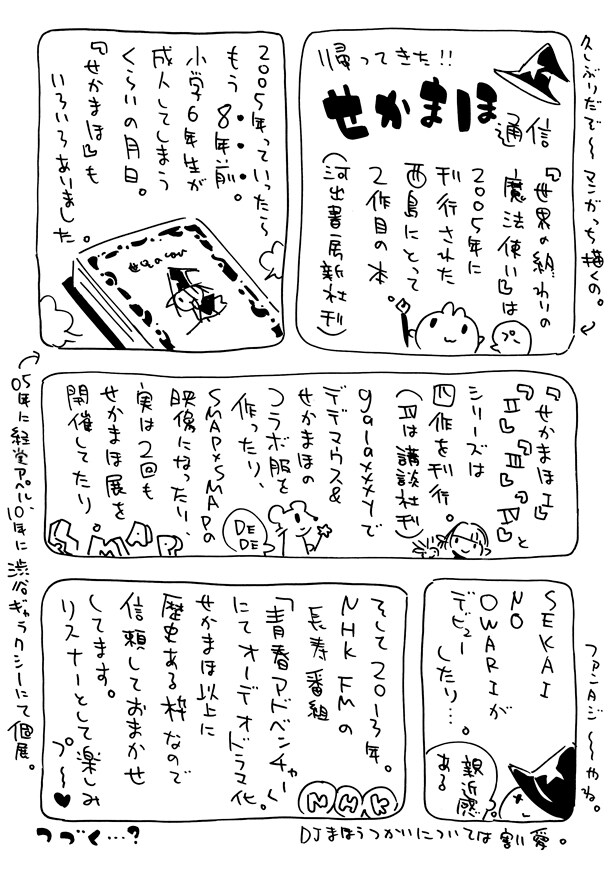 久しぶりだで〜マンガっち描くの。
帰ってきた!!
せかまほ
通信
『世界の終わりの
魔法使い』は
2005年に
刊行された
西島にとって
2作目の本。
(河出書房新社刊)
プー
2005年っていったら〜
もう8年前。
小学6年生が
成人してしまう
くらいの月日。
『せかまほ』も
いろいろありました。
『せかまほⅠ』
『Ⅱ』『Ⅲ』『Ⅳ』と
シリーズは
四作を刊行。
(Ⅳは講談社刊)
galaxxxyで
デデマウス&
せかまほの
コラボ服を
作ったり、
SMAP×SMAPの
映像になったり、
実は2回も
せかまほ展を
開催してたり。
DE
DE
SMAP
05年に経堂アペル、10年に渋谷ギャラクシーにて個展。
SEKAI
NO
OWARIが
デビュー
したり…。
親近感
ある
ファンタジ〜〜やね。
そして2013年。
NHK FMの
長寿番組
「青春アドベンチャー」
にてオーディオドラマ化。
せかまほ以上に
歴史ある枠なので
信頼しておまかせ
してます。
リスナーとして楽しみ
プ〜♥
NHK
DJまほうつかいについては割愛。
つづく…?